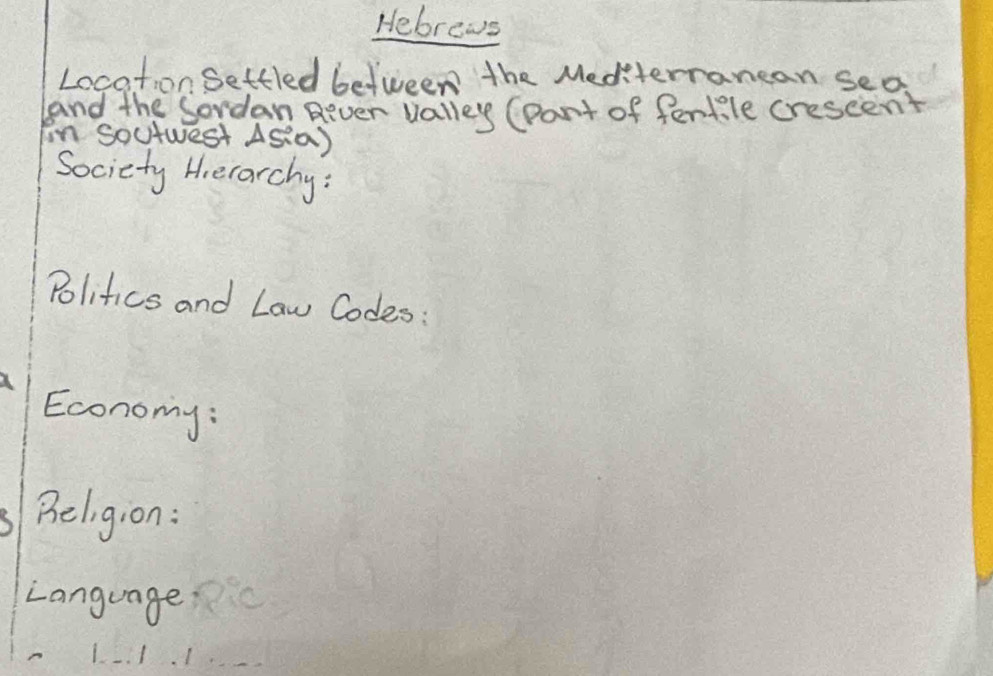 Hebrews
Location Settled between the Mediterranean sea
and the Sordan River Valley (Part of fertile crescent
in soutwest Asia)
Society Hierarchy:
Politics and Law Codes:
Economy:
Religion:
Language: